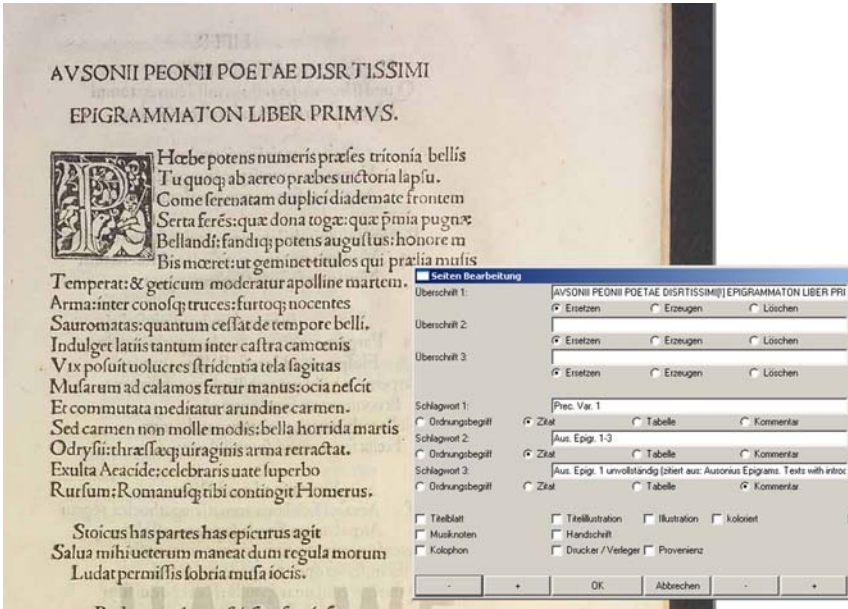 AVSONII PEONII POETAE DISRTISSIMI
EPIGRAMMATON LIBER PRIMVS.
PHœbe potens numeris præſes tritonia bellis
Tu quoq; ab aereo præbes uictoria lapſu.
Come ſerenatam duplici diademate frontem
Serta ferēs: quæ dona togæ: quæ p̄mia pugnæ
Bellandi: fandiq; potens auguſtus: honorem
Bis mœret: ut geminet titulos qui prælia muſis
Temperat: & geticum moderatur apolline martem.
Arma: inter conoſq; truces: furtoq; nocentes
Sauromatas: quantum ceſſat de tempore belli,
Indulget latiis tantum inter caſtra camœnis
Vix poſuit uolucres ſtridentia tela ſagittas
Muſarum ad calamos fertur manus: ocia neſcit
Et commutata meditatur arundine carmen.
Sed carmen non molle modis: bella horrida martis
Odryſii: thræſſæq; uiraginis arma retractat.
Exulta Aeacide: celebraris uate ſuperbo
Rurſum: Romanuſq; tibi contingit Homerus.
Stoicus has partes has epicurus agit
Salua mihi ueterum maneat dum regula morum
Ludat permiſſis ſobria muſa iocis.
Seiten Bearbeitung
Überschrift 1: AVSONII PEONII POETAE DISRTISSIMI[!] EPIGRAMMATON LIBER PRI
Ersetzen Erzeugen Löschen
Überschrift 2:
Ersetzen Erzeugen Löschen
Überschrift 3:
Ersetzen Erzeugen Löschen
Schlagwort 1: Prec. Var. 1
Ordnungsbegriff Zitat Tabelle Kommentar
Schlagwort 2: Aus. Epigr. 1-3
Ordnungsbegriff Zitat Tabelle Kommentar
Schlagwort 3: Aus. Epigr. 1 unvollständig (zitiert aus: Ausonius Epigrams. Texts with introd
Ordnungsbegriff Zitat Tabelle Kommentar
Titelblatt Titelillustration Illustration koloriert
Musiknoten Handschrift
Kolophon Drucker / Verleger Provenienz
- + OK Abbrechen - +